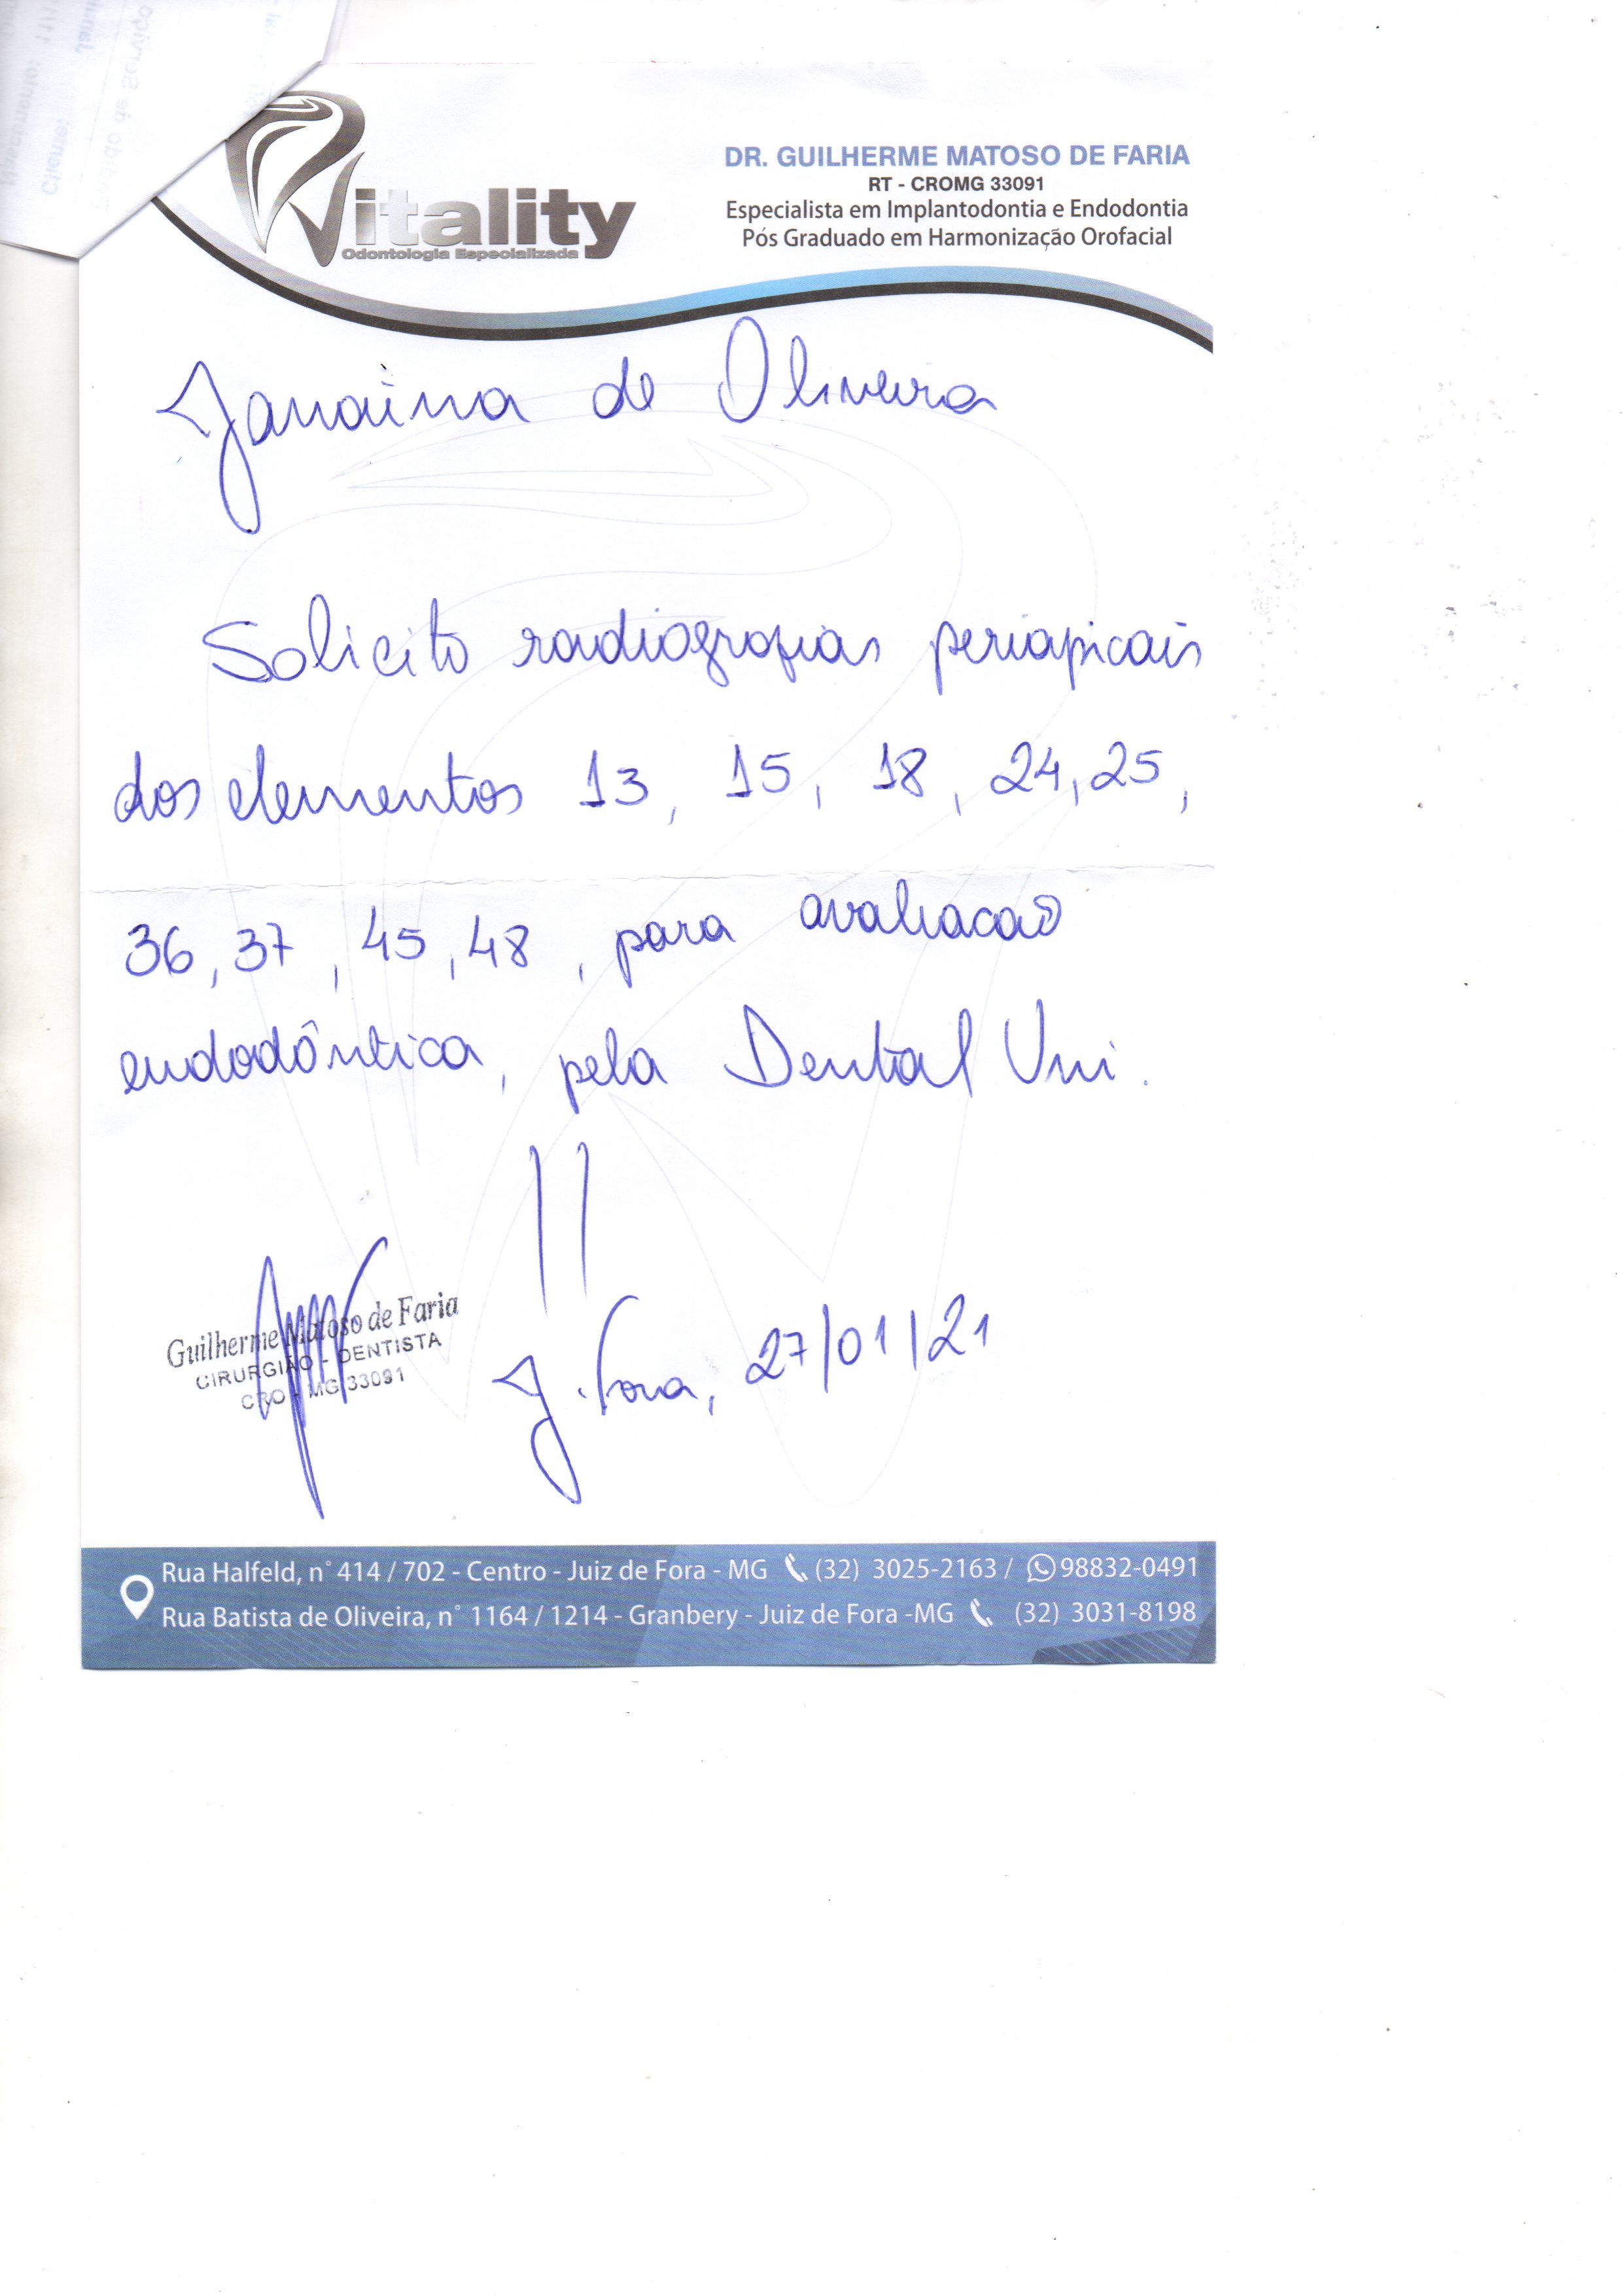 Vitality
Odontologia Especializada
DR. GUILHERME MATOSO DE FARIA
RT - CROMG 33091
Especialista em Implantodontia e Endodontia
Pós Graduado em Harmonização Orofacial
Janaína de Oliveira
Solicito radiografias periapicais
dos elementos 13, 15, 18, 24, 25,
36, 37, 45, 48, para avaliacaõ
endodôntica, pela Dental Uni.
Guilherme Matoso de Faria
CIRURGIÃO - DENTISTA
CRO - MG 33091
J. Fora, 27/01/21
Rua Halfeld, n° 414 / 702 - Centro - Juiz de Fora - MG (32) 3025-2163 / 98832-0491
Rua Batista de Oliveira, n° 1164 / 1214 - Granbery - Juiz de Fora -MG (32) 3031-8198